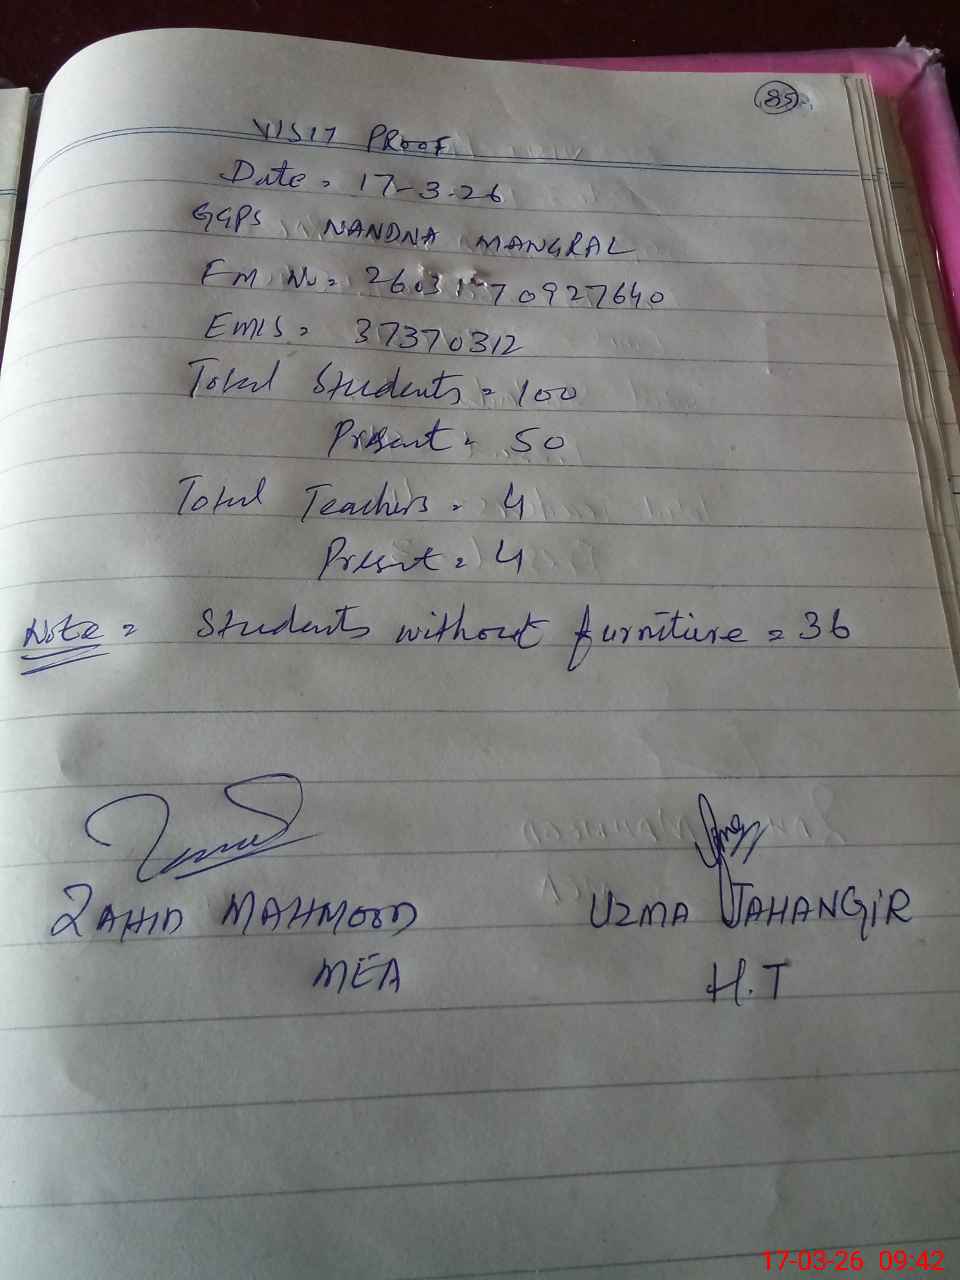 85
VISIT PROOF
Date = 17-3-26
GGPS NANDNA MANGRAL
FM No = 26031770927640
EMIS = 37370312
Total Students = 100
Present = 50
Total Teachers = 4
Present = 4
Note = Students without furniture = 36
ZAHID MAHMOOD
UZMA JAHANGIR
MEA
H.T
17-03-26 09:42